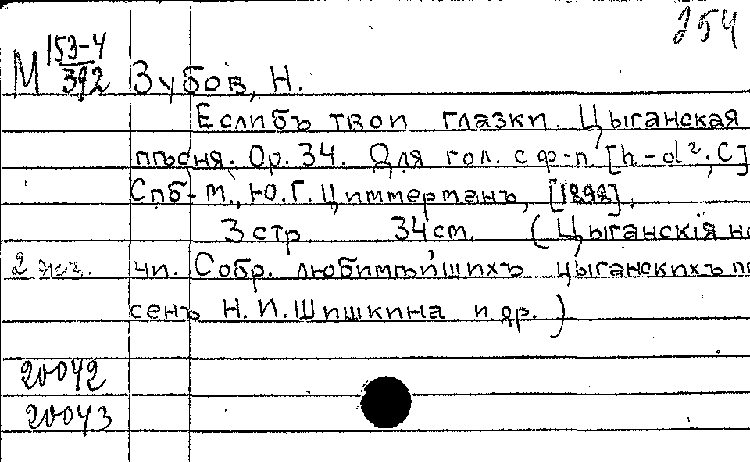 254
М 153-4/392 Зубов, Н.
Еслибъ твои глазки. Цыганская
пѣсня. Ор. 34. Для гол. с ф-п. [h-d²; С]
Спб-М., Ю.Г. Циммерманъ, [1898].
3 стр. 34 см. (Цыганскія но
2 экз. чи. Собр. любимѣйшихъ цыганскихъ пѣ
сенъ Н.И. Шишкина и др.)
20042
20043